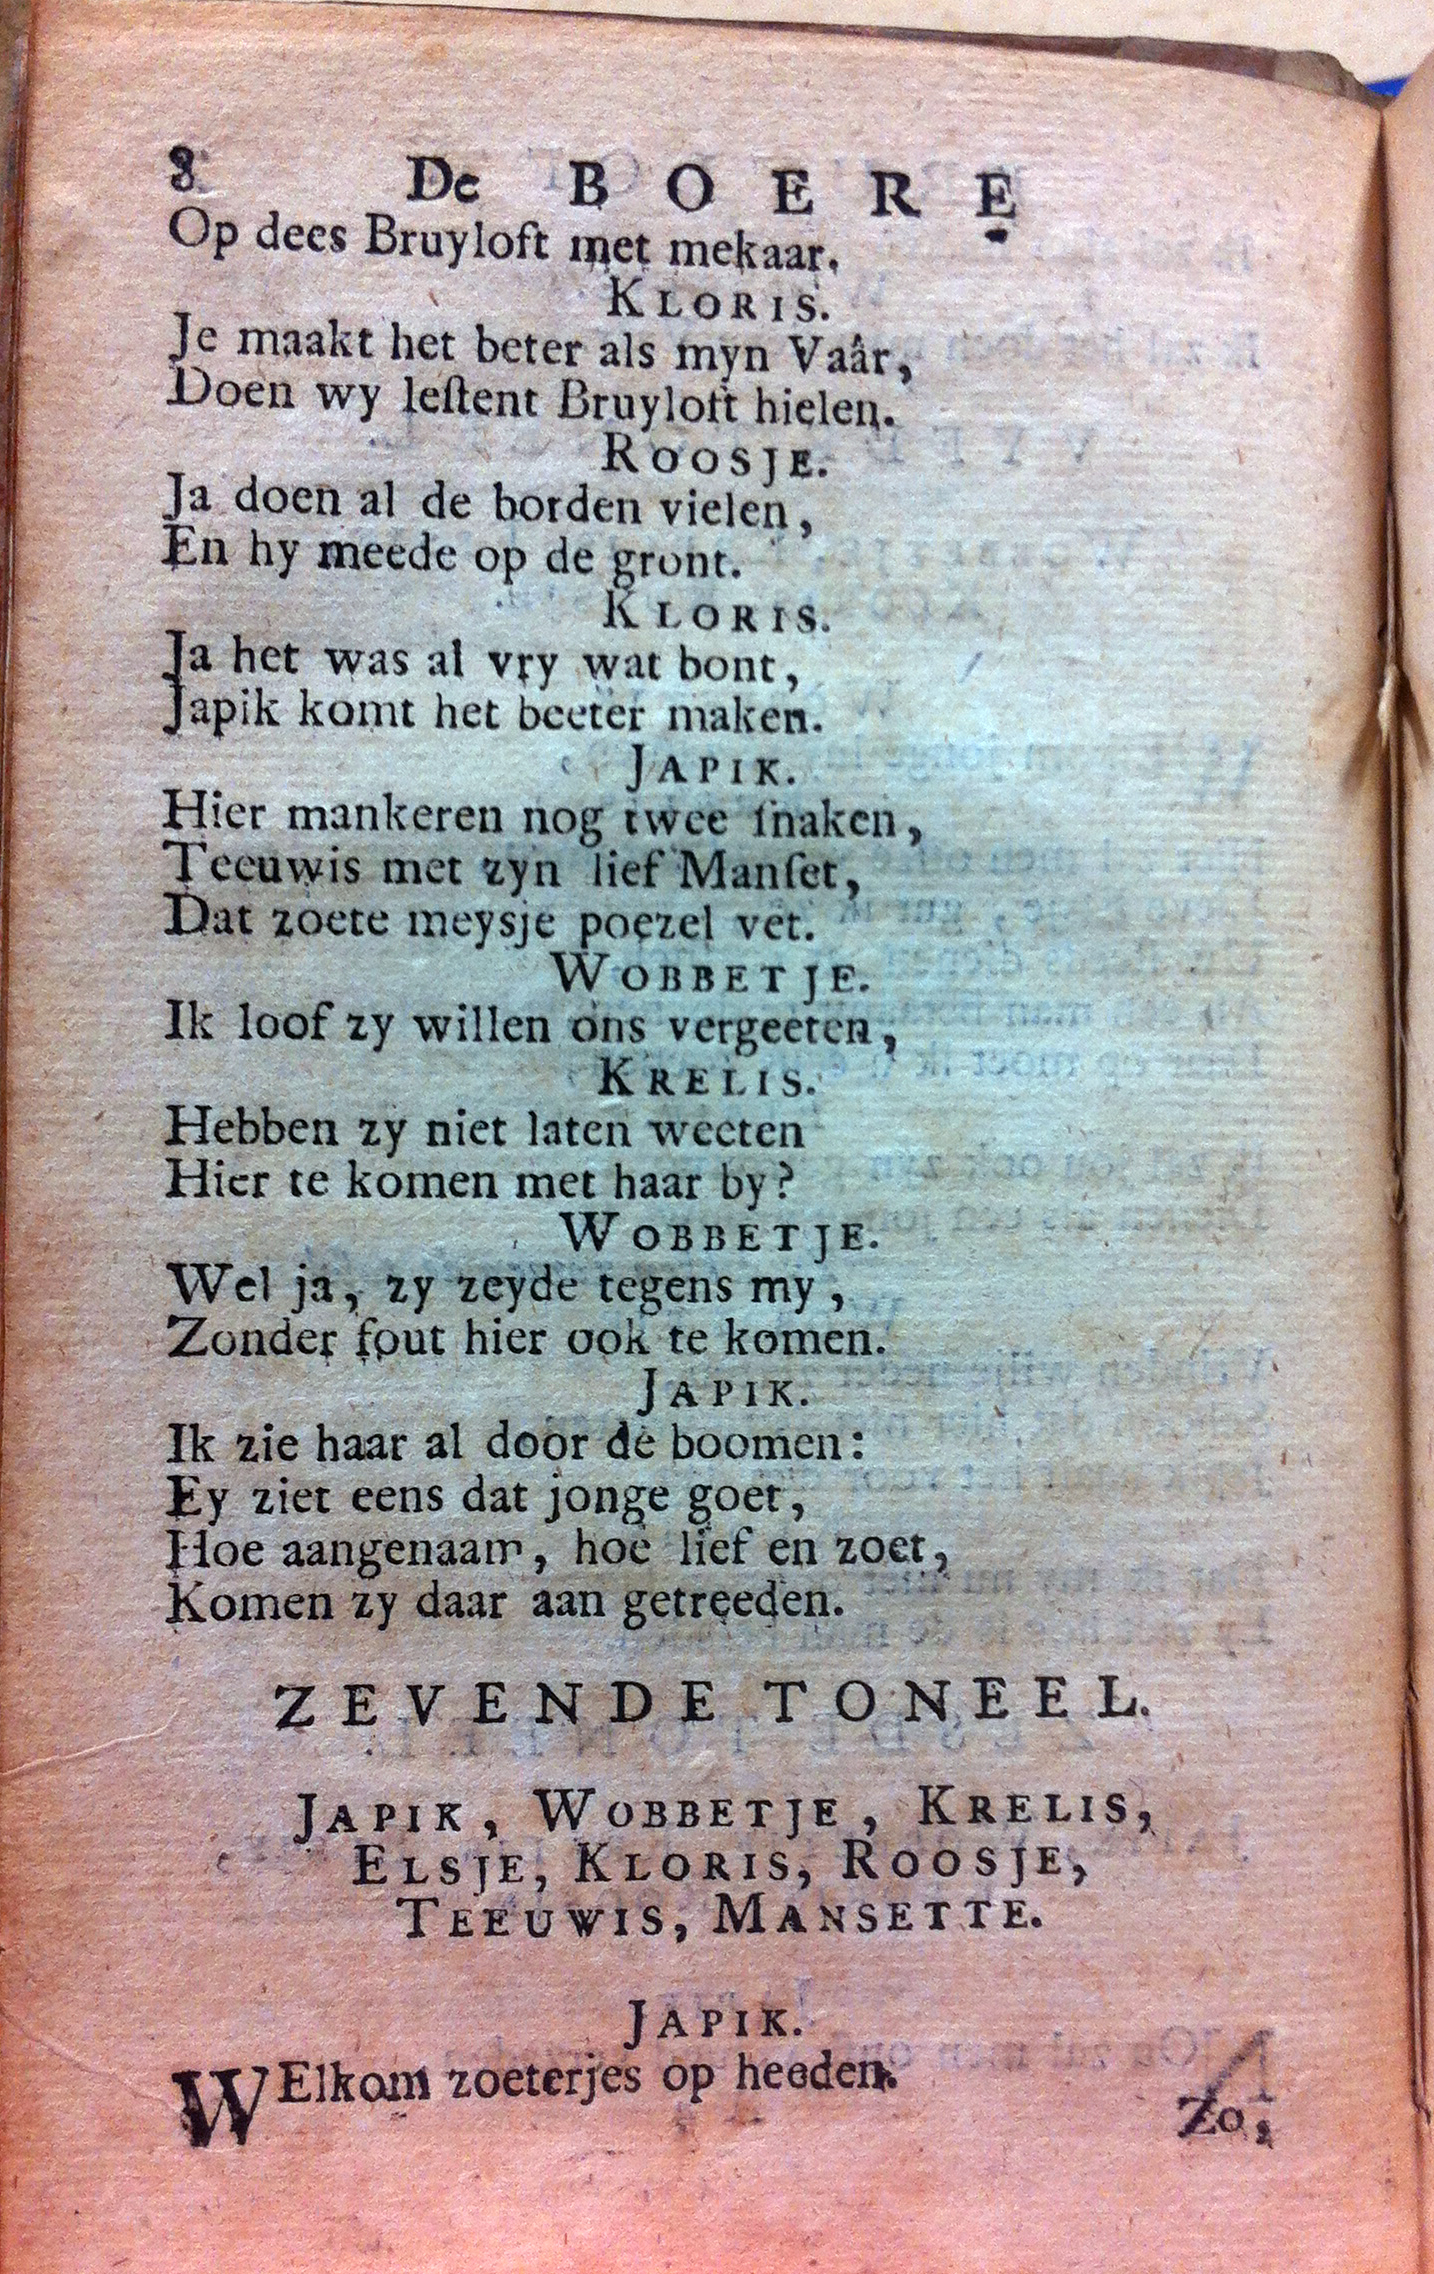 8 De BOERE
Op dees Bruyloft met mekaar.
KLORIS.
Je maakt het beter als myn Vaâr,
Doen wy leſtent Bruyloft hielen.
ROOSJE.
Ja doen al de borden vielen,
En hy meede op de gront.
KLORIS.
Ja het was al vry wat bont,
Japik komt het beeter maken.
JAPIK.
Hier mankeren nog twee ſnaken,
Teeuwis met zyn lief Manſet,
Dat zoete meysje poezel vet.
WOBBETJE.
Ik loof zy willen ons vergeeten,
KRELIS.
Hebben zy niet laten weeten
Hier te komen met haar by?
WOBBETJE.
Wel ja, zy zeyde tegens my,
Zonder fout hier ook te komen.
JAPIK.
Ik zie haar al door de boomen:
Ey ziet eens dat jonge goet,
Hoe aangenaam, hoe lief en zoet,
Komen zy daar aan getreeden.
ZEVENDE TONEEL.
JAPIK, WOBBETJE, KRELIS,
ELSJE, KLORIS, ROOSJE,
TEEUWIS, MANSETTE.
JAPIK.
WElkom zoeterjes op heeden.
Zo,